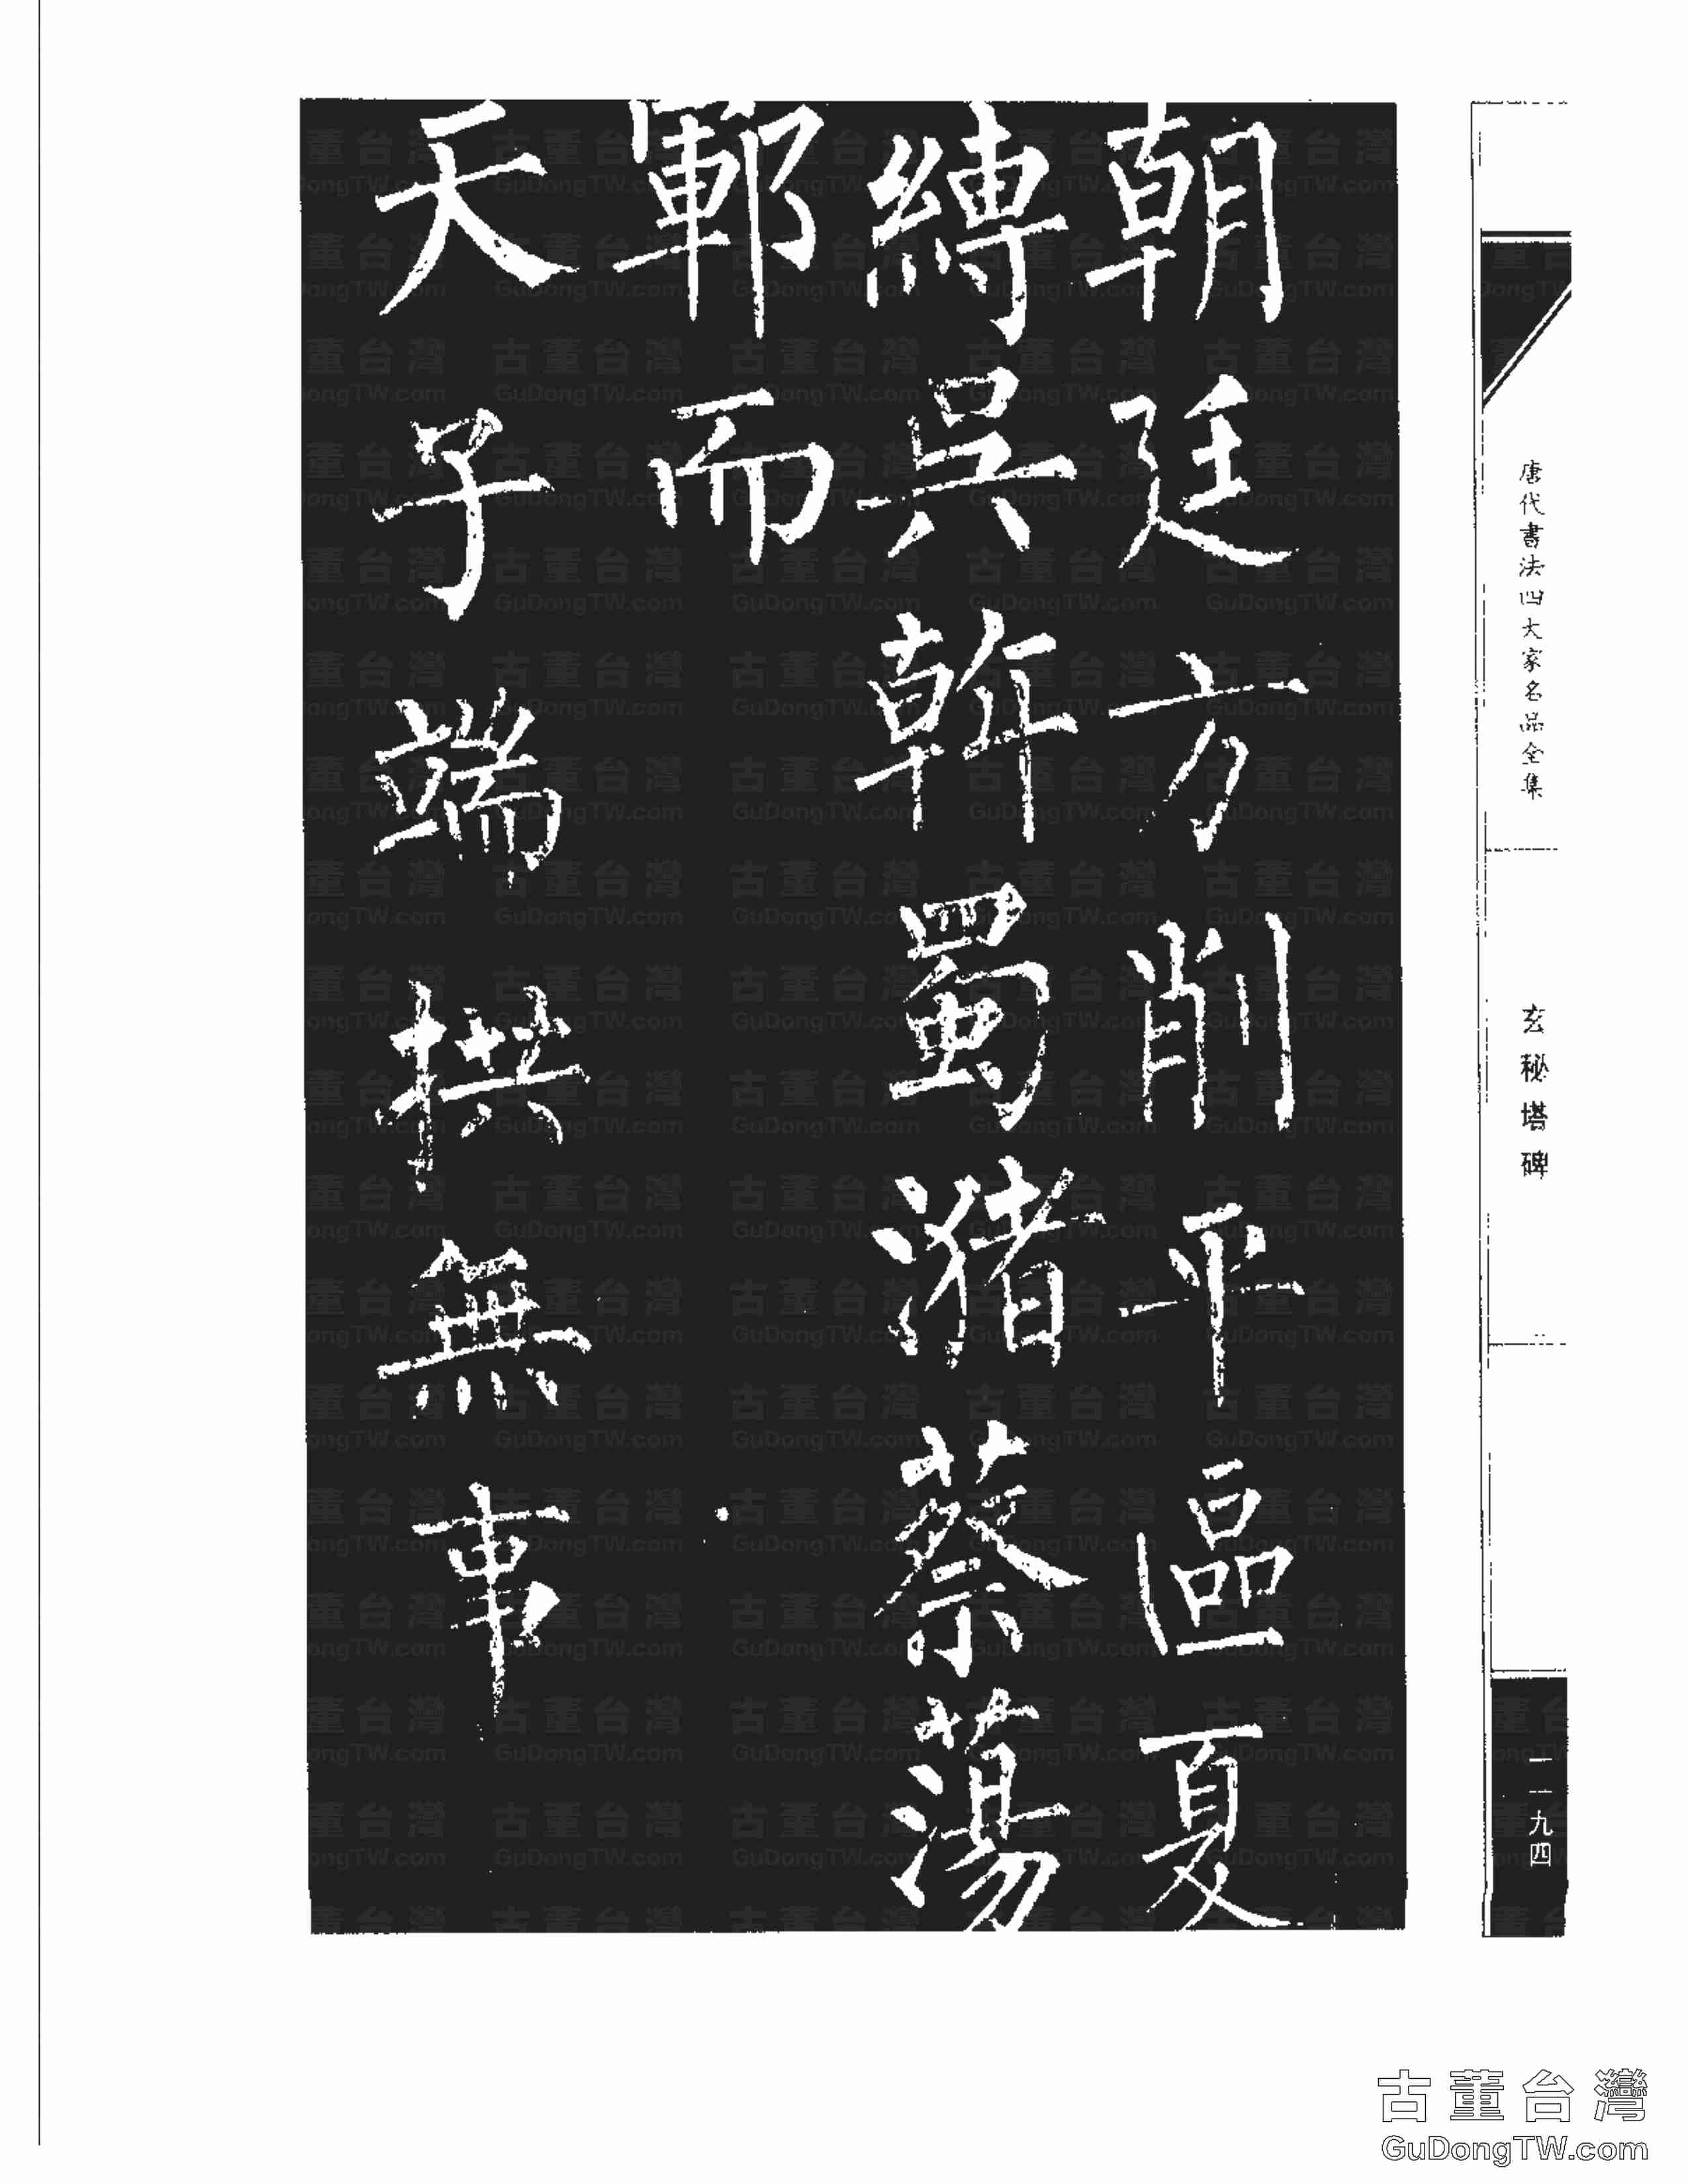 朝廷方削平區夏
縛吳斡蜀潴蔡蕩
鄆而
天子端拱無事
唐代書法四大家名品全集
玄秘塔碑
一一九四
古董台灣
GuDongTW.com